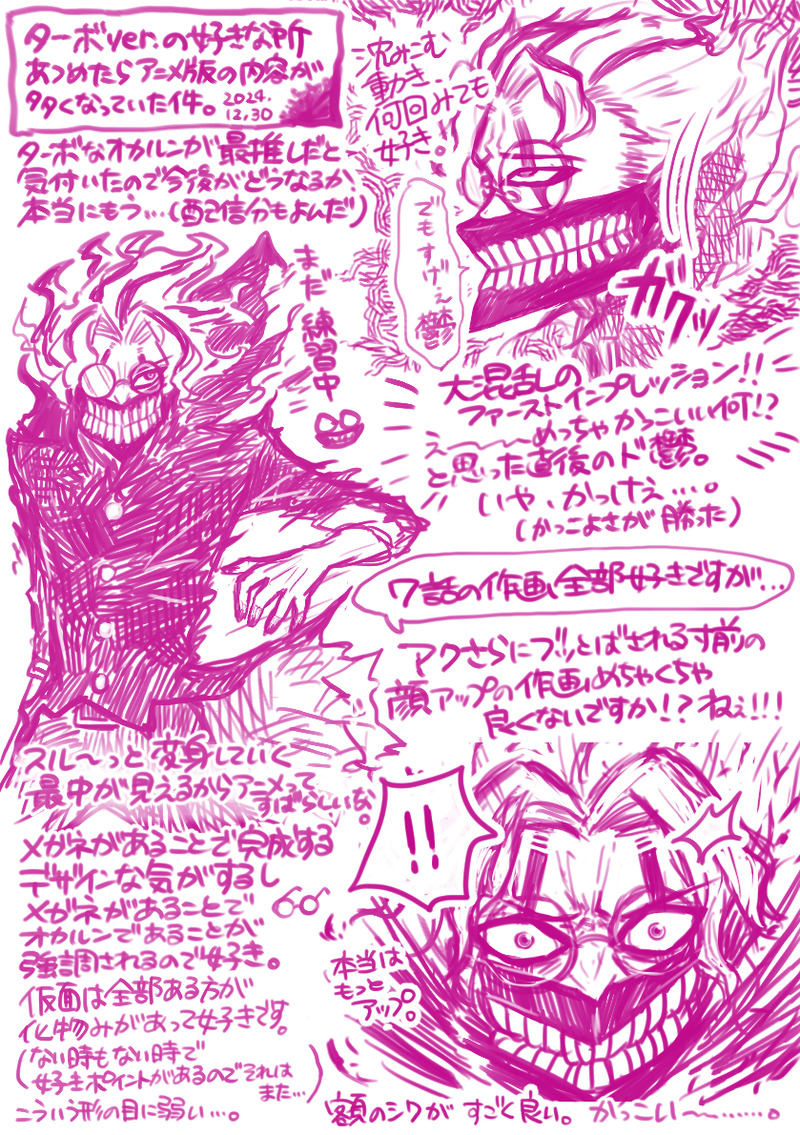 ターボver.の好きな所
あつめたらアニメ版の内容が
多くなっていた件。2024.
12.30
ターボなオカルンが最推しだと
気付いたので今後がどうなるか、
本当にもう…(配信分もよんだ)
沈みこむ
動き、
何回みても
好き。!!
でもすげぇ鬱
ガクッ
まだ練習中
大混乱の
ファーストインプレッション!!
え~~~めっちゃかっこいい何!?
と思った直後のド鬱。
いや、かっけぇ…。
(かっこよさが勝った)
7話の作画、全部好きですが…
アクさらにブッとばされる寸前の
顔アップの作画めちゃくちゃ
良くないですか!?ねぇ!!!
スル~っと変身していく
最中が見えるからアニメって
すばらしいな。
メガネがあることで完成する
デザインな気がするし
メガネがあることで
オカルンであることが
強調されるので好き。
仮面は全部ある方が
化物みがあって好きです。
(ない時もない時で
好きポイントがあるのでそれは
また…)
こういう形の目に弱い…。
!!
本当は
もっと
アップ。
額のシワがすごく良い。かっこい~~……。